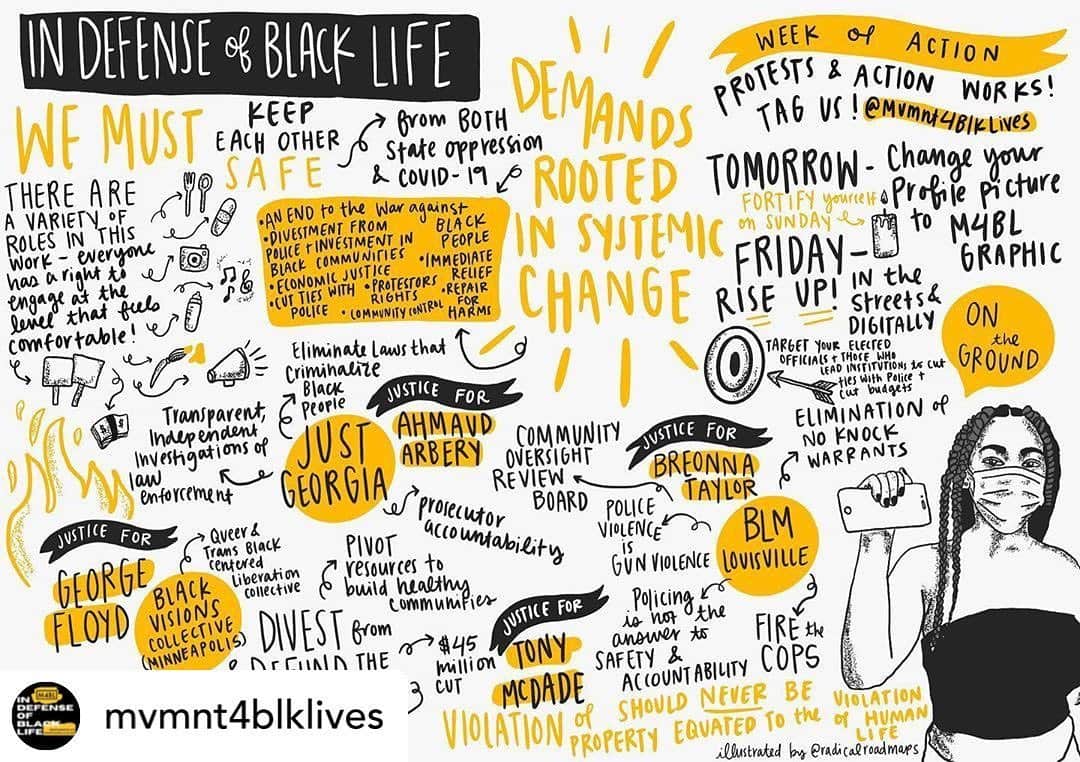 IN DEFENSE of BLACK LIFE
WE MUST
KEEP
EACH OTHER
SAFE
from BOTH
State oppression
& COVID-19
THERE ARE
A VARIETY OF
ROLES IN THIS
WORK - everyone
has a right to
engage at the
level that feels
comfortable!
•AN END to the War against
BLACK
PEOPLE
•DIVESTMENT FROM
POLICE + INVESTMENT IN
BLACK COMMUNITIES
•ECONOMIC JUSTICE
•CUT TIES WITH
POLICE
•PROTESTORS
RIGHTS
•COMMUNITY CONTROL
•IMMEDIATE
RELIEF
•REPAIR
FOR
HARMS
DEMANDS
ROOTED
IN SYSTEMIC
CHANGE
WEEK of ACTION
PROTESTS & ACTION WORKS!
TAG US! @Mvmnt4BlkLives
TOMORROW - Change your
Profile picture
to M4BL
GRAPHIC
FORTIFY yourself
on SUNDAY
FRIDAY -
RISE UP!
IN the
Streets &
DIGITALLY
TARGET YOUR ELECTED
OFFICIALS + THOSE WHO
LEAD INSTITUTIONS to cut
ties with Police +
cut budgets
ON
the
GROUND
Eliminate Laws that
Criminalize
Black
People
JUSTICE FOR
AHMAUD
ARBERY
JUST
GEORGIA
Transparent,
Independent
Investigations of
law
enforcement
prosecutor
accountability
COMMUNITY
OVERSIGHT
REVIEW
BOARD
JUSTICE FOR
BREONNA
TAYLOR
ELIMINATION of
NO KNOCK
WARRANTS
BLM
LOUISVILLE
POLICE
VIOLENCE
is
GUN VIOLENCE
Policing
is not the
answer to
SAFETY &
ACCOUNTABILITY
FIRE the
COPS
JUSTICE FOR
GEORGE
FLOYD
BLACK
VISIONS
COLLECTIVE
(MINNEAPOLIS)
Queer &
Trans Black
centered
Liberation
collective
PIVOT
resources to
build healthy
communities
DIVEST from
& DEFUND THE
$45
million
CUT
JUSTICE FOR
TONY
MCDADE
VIOLATION of PROPERTY SHOULD NEVER BE EQUATED TO the VIOLATION of HUMAN LIFE
illustrated by @radicalroadmaps
M4BL
IN
DEFENSE
OF
BLACK
LIFE
mvmnt4blklives